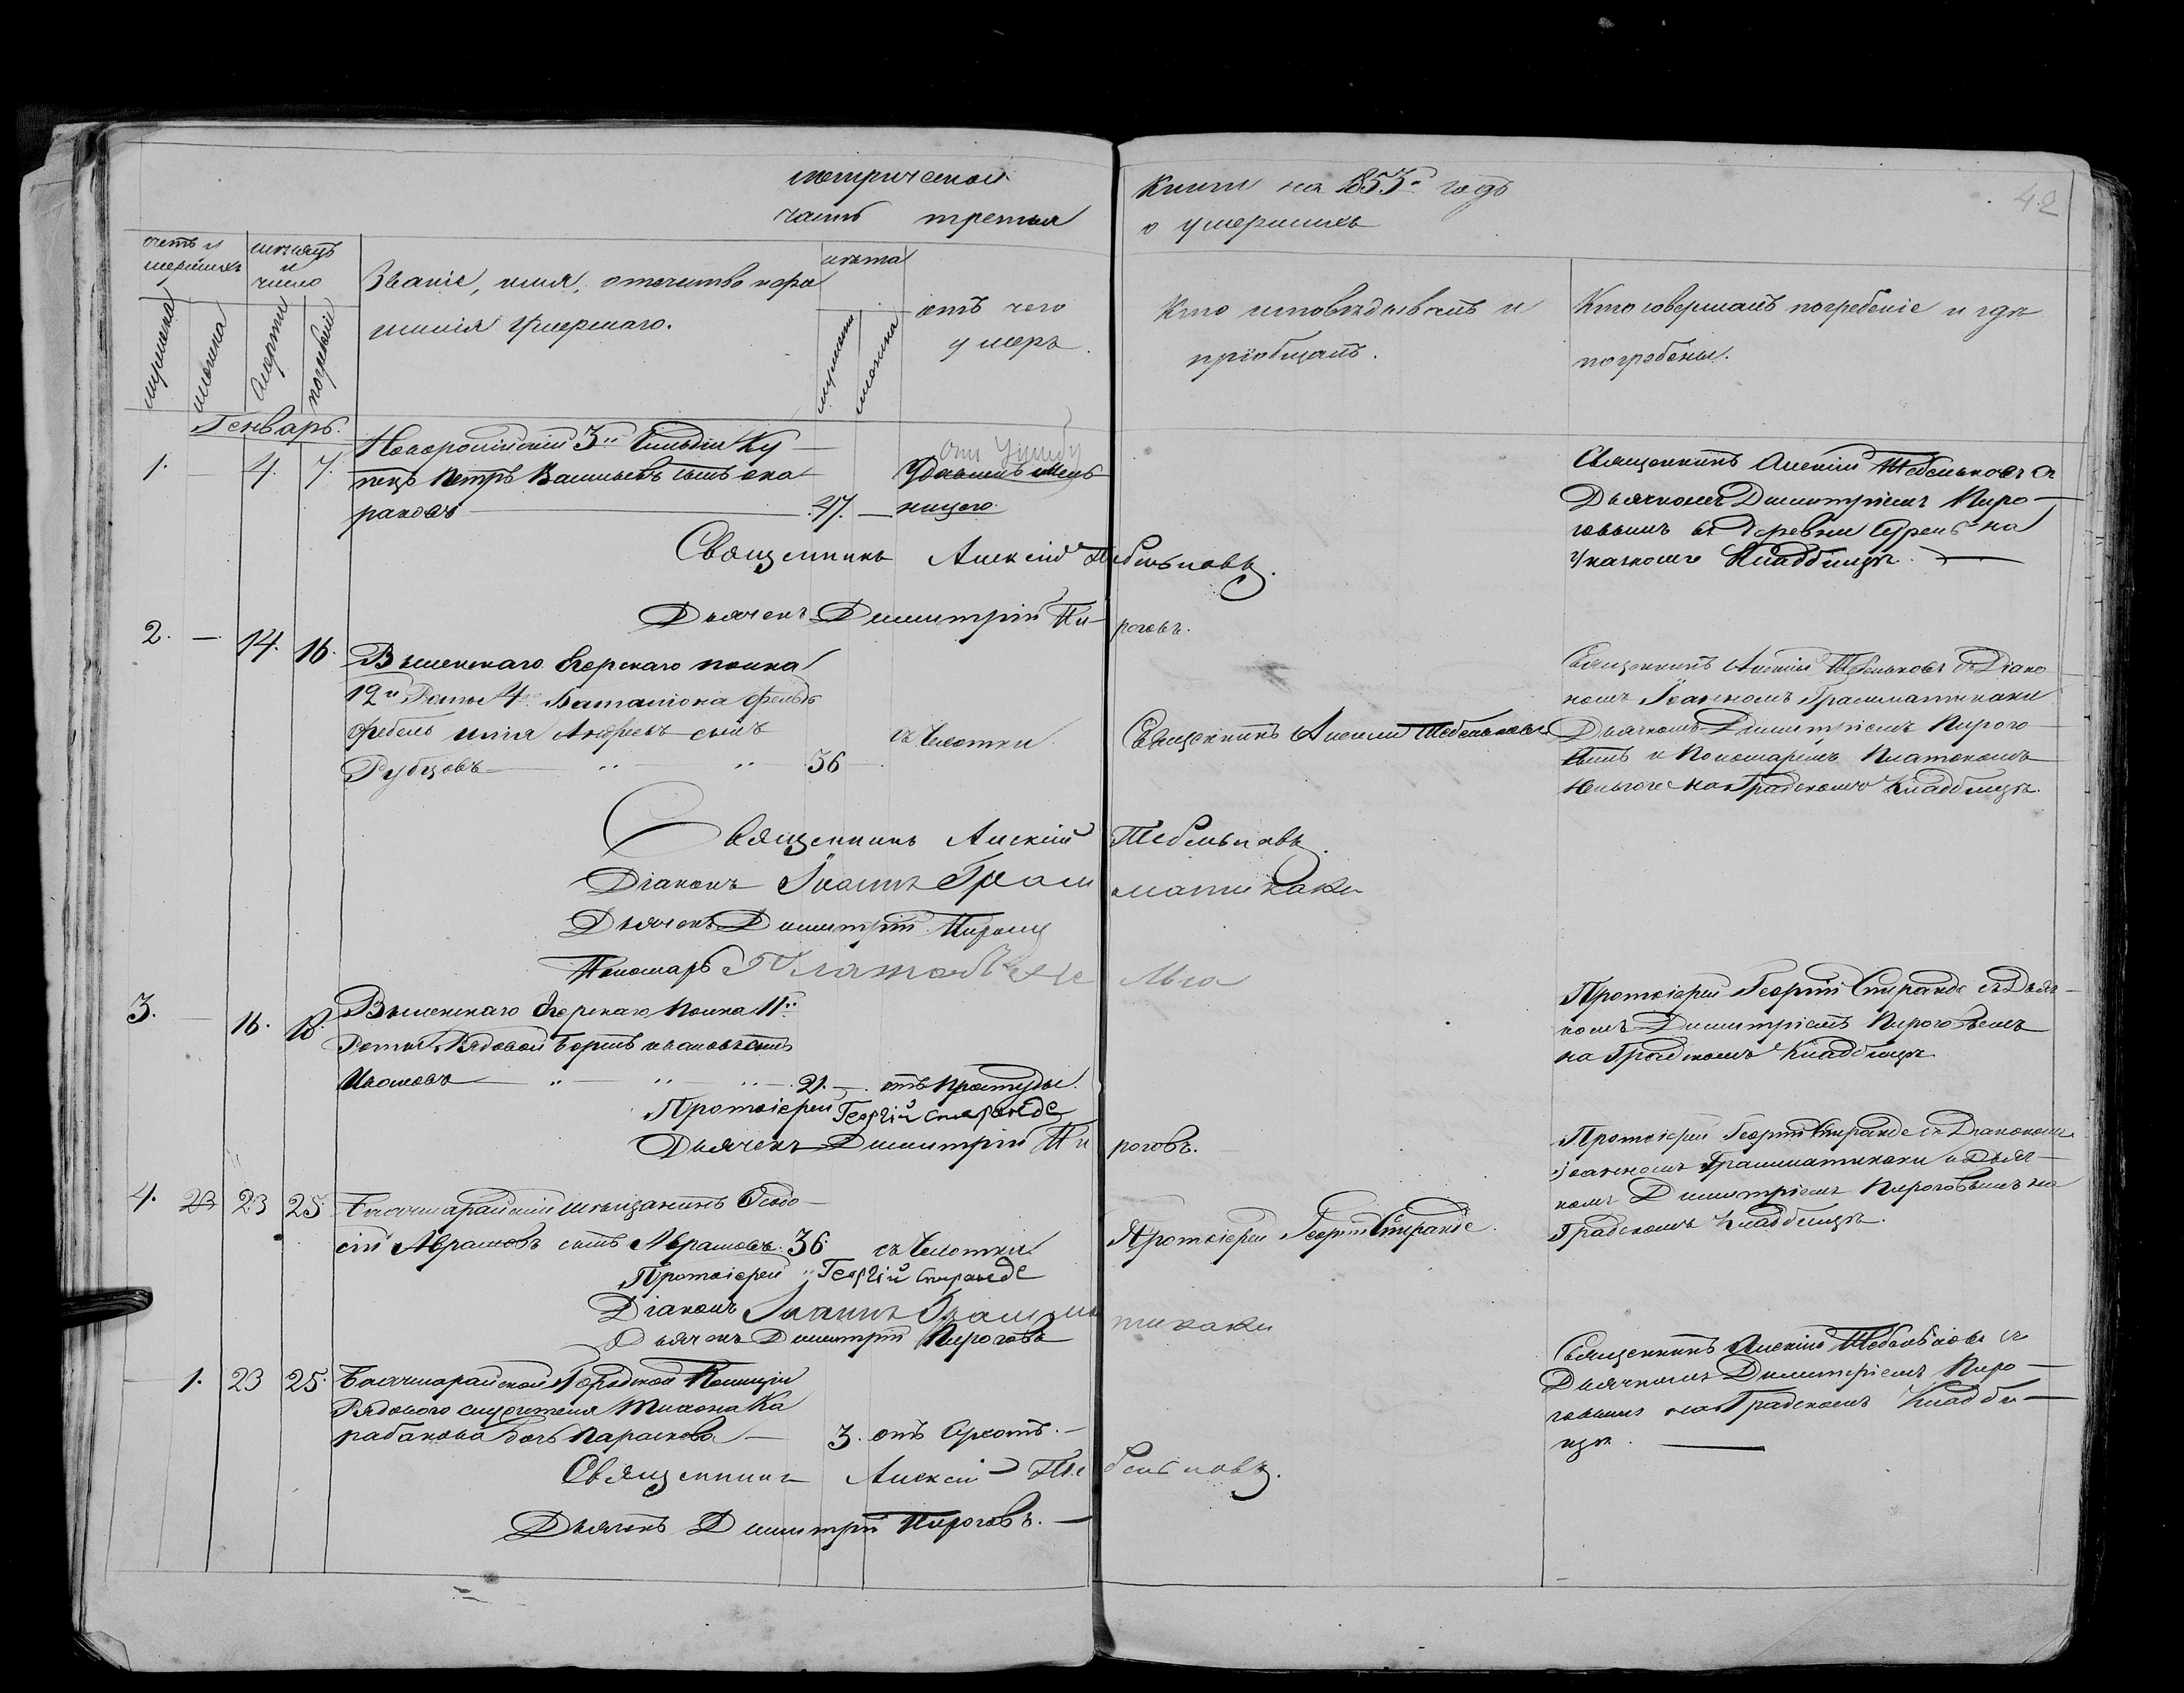 метрической
часть третья
Книги на 1855й годъ
о умершихъ
42
счетъ у
мершихъ
мѣсяцъ
и
число
Званіе, имя, отечество и фа
милія умершаго.
лѣта
отъ чего
умеръ.
Кто исповѣдывалъ и
пріобщалъ.
Кто совершалъ погребеніе и гдѣ
погребены.
мужеска
женска
смерти
погребеніе
мужска
женска
Генварь.
1. — 4. 7. Новоросійскій 3й Гильдіи Ку
пецъ Петръ Васильевъ сынъ
раковъ 47. —
отъ Ушибу
ницею
Священникъ Алексій Тебельковъ съ
Дьячкомъ Димитріемъ Пиро
говымъ въ деревни на
Указномъ Кладбищѣ.
Священникъ Алексій Тебельковъ.
Дьячекъ Димитрій Пироговъ.
2. — 14. 16. Виленскаго Егерскаго полка
12й Роты 4го Баталіона Фельд
фебель Илія Андреевъ сынъ
Рубцовъ 36
съ Чехотки
Священникъ Алексій Тебельковъ
Священникъ Алексій Тебельковъ съ Діако
номъ Іоанномъ Грамматикаки
Дьячкомъ Димитріемъ Пирого
вымъ и Пономаремъ Платономъ
на Градскомъ Кладбищѣ.
Священникъ Алексій Тебельковъ.
Діаконъ Іоаннъ Грамматикаки
Дьячекъ Димитрій Пироговъ
Пономарь Платонъ
3. — 16. 18. Виленскаго Егерскаго Полка 11й
Роты Рядовой Борисъ Ивановъ сынъ
Ивановъ 21. — отъ Простуды.
Протоіерей Георгій Спиранде съ Дьяч
комъ Димитріемъ Пироговымъ
на Градскомъ Кладбищѣ
Протоіерей Георгій Спиранде
Дьячекъ Димитрій Пироговъ.
4. 23 23 25. Бахчисарайскій мѣщанинъ Феодо
сій Аврамовъ сынъ Аврамовъ. 36. съ Чехотки
Протоіерей Георгій Спиранде.
Протоіерей Георгій Спиранде съ Діакономъ
Іоанномъ Грамматикаки и Дьяч
комъ Димитріемъ Пироговымъ на
Градскомъ Кладбищѣ.
Протоіерей Георгій Спиранде
Діаконъ Іоаннъ Грамматикаки
Дьячекъ Димитрій Пироговъ
— 1. 23 25. Бахчисарайской Городской Полиціи
Рядоваго служителя Тихона Ка
рабанова дочь Параскева — 3. отъ —
Священникъ Алексій Тебельковъ съ
Дьячкомъ Димитріемъ Пиро
говымъ на Градскомъ Кладби
щѣ.
Священникъ Алексій Тебельковъ.
Дьячекъ Димитрій Пироговъ.